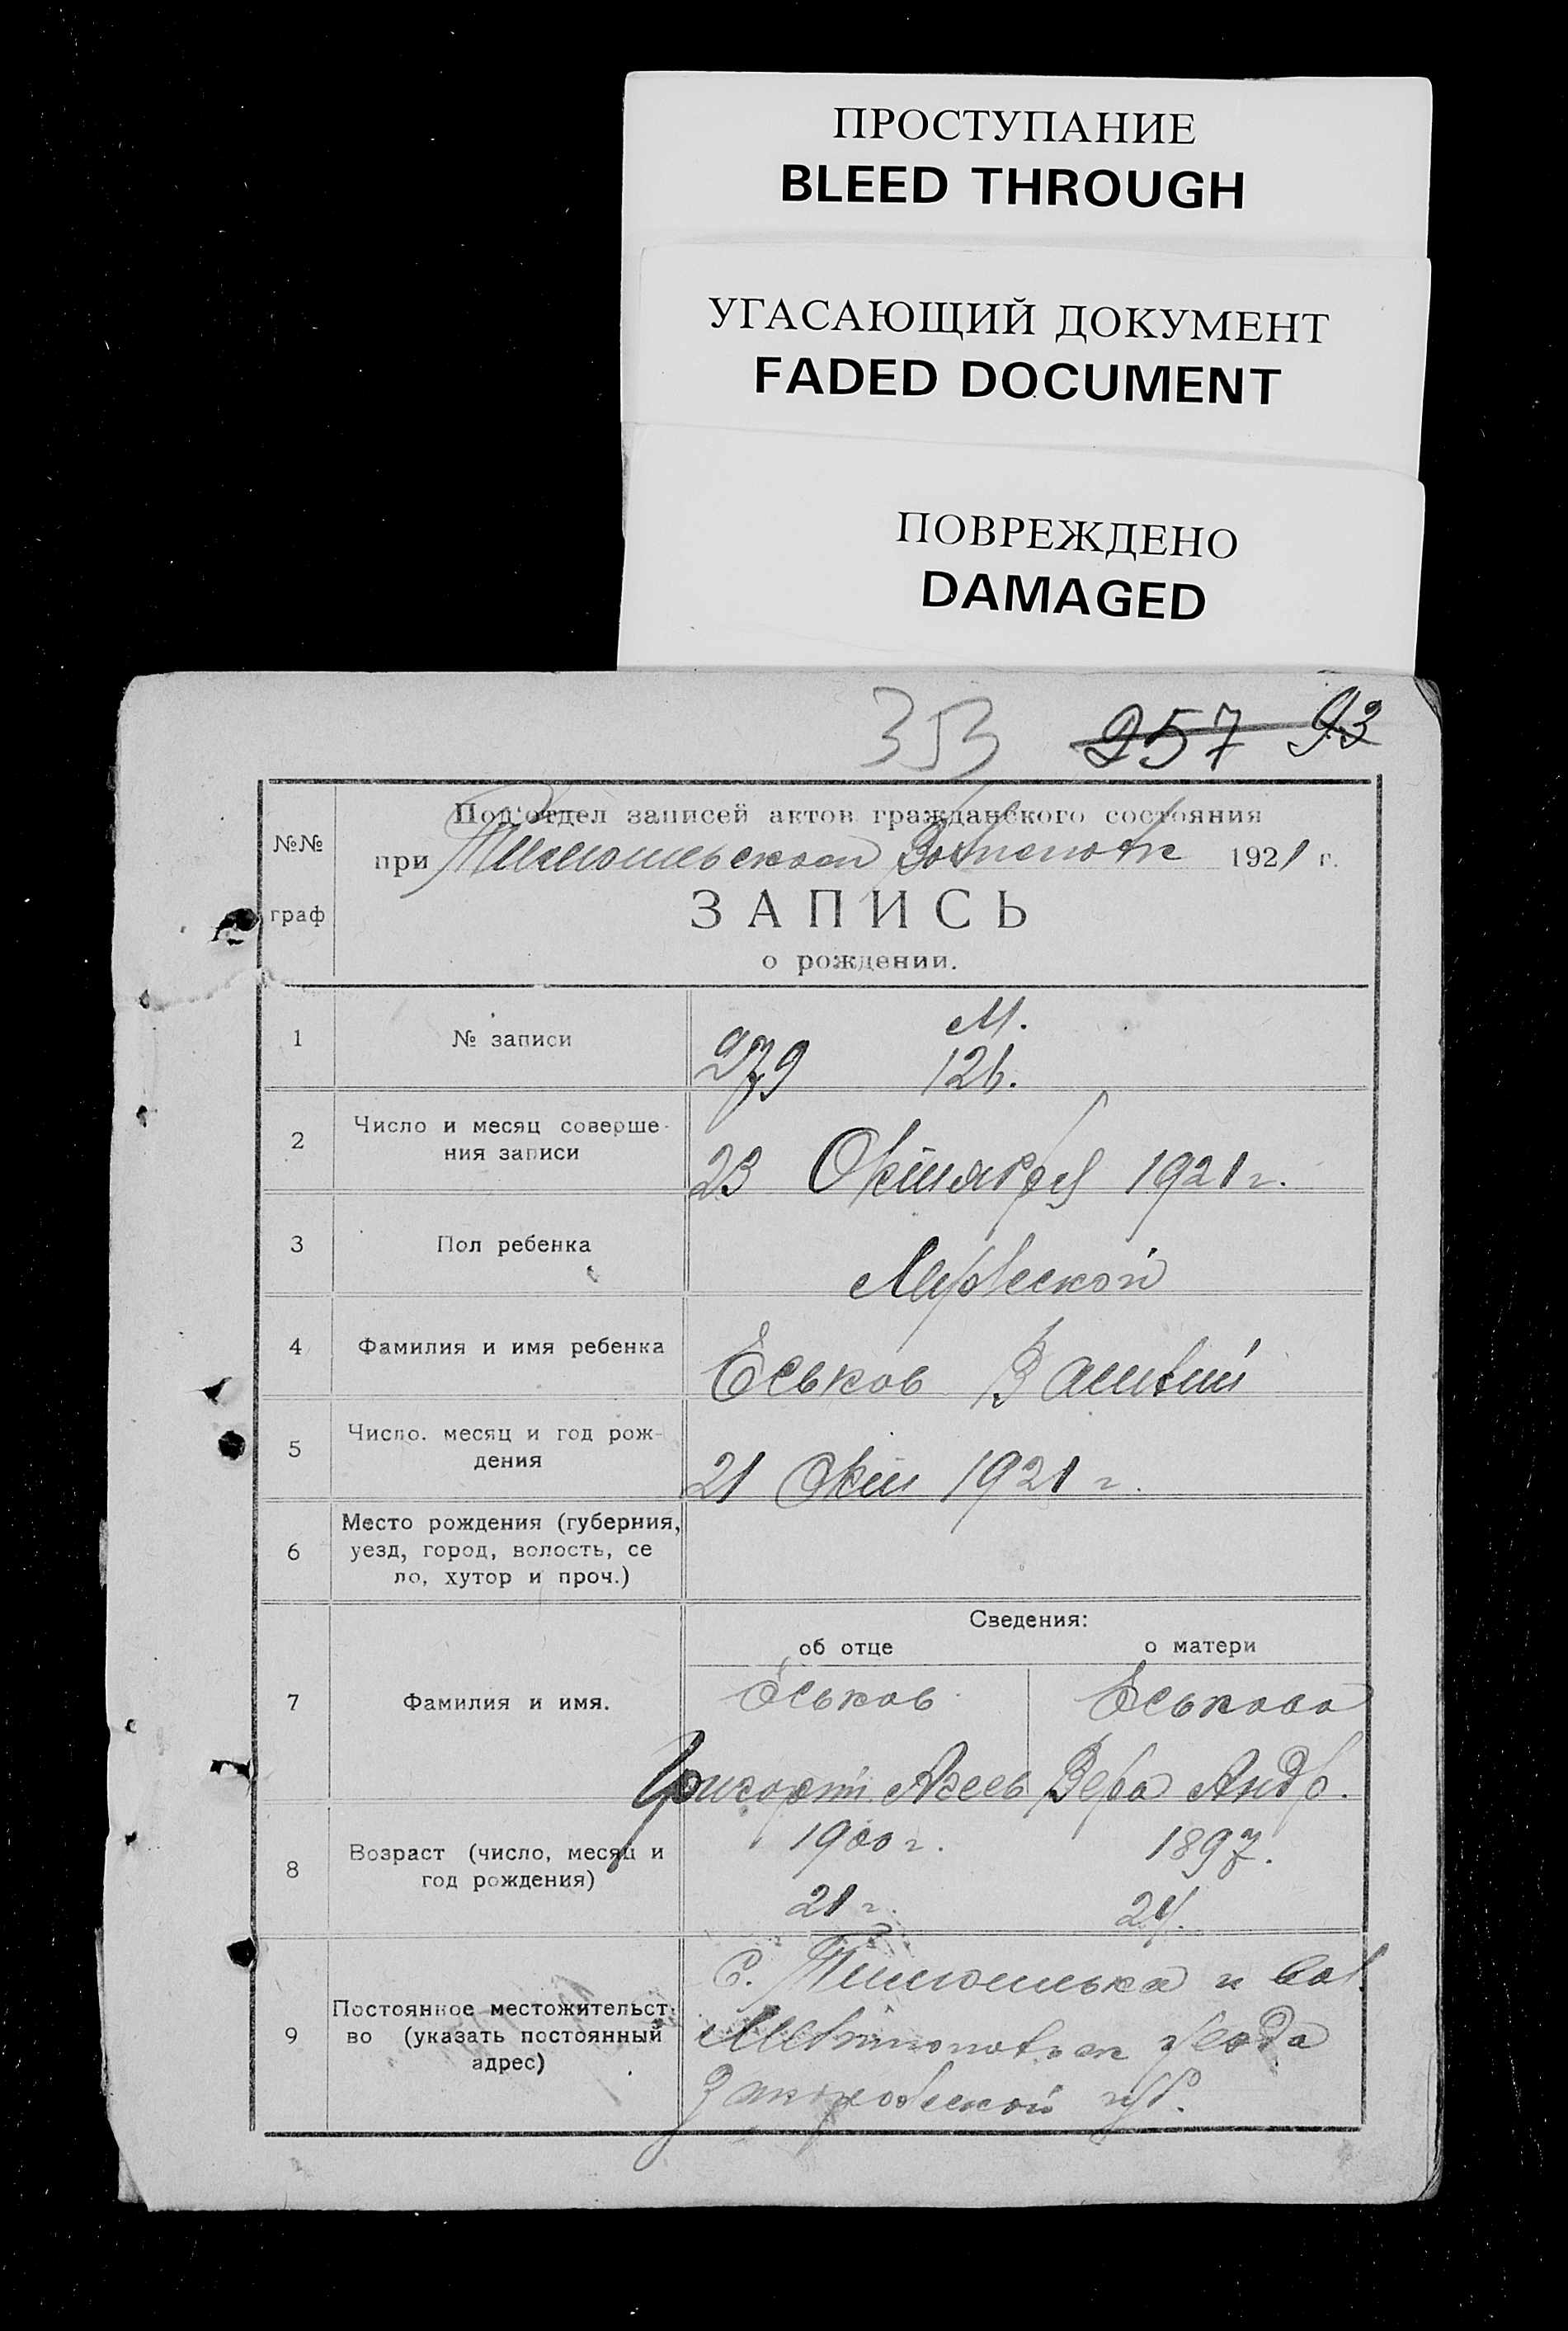 ПРОСТУПАНИЕ
BLEED THROUGH
УГАСАЮЩИЙ ДОКУМЕНТ
FADED DOCUMENT
ПОВРЕЖДЕНО
DAMAGED
353 257 93
№№
граф
Под'отдел записей актов гражданского состояния
при 1921 г.
ЗАПИСЬ
о рождении.
1 № записи 279 М. 126.
2 Число и месяц соверше-
ния записи
23 Октября 1921 г.
3 Пол ребенка
Мужеской
4 Фамилия и имя ребенка
Еськов
5 Число. месяц и год рож-
дения
21 Окт 1921 г.
6 Место рождения (губерния,
уезд, город, волость, се
ло, хутор и проч.)
Сведения:
об отце о матери
7 Фамилия и имя.
Еськов Еськова
Григорий Вера Андр.
8 Возраст (число, месяц и
год рождения)
1900 г. 1897.
21 г. 24.
9 Постоянное местожительст-
во (указать постоянный
адрес)
С. Тимошевка и вол.
уезда
губ.